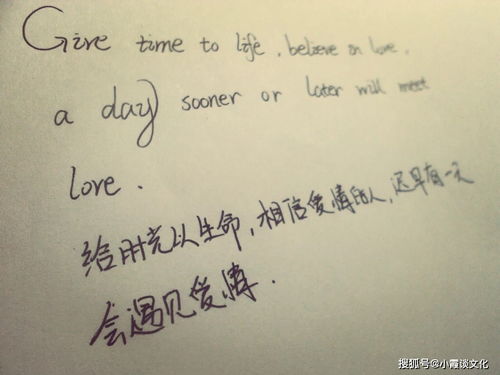 Give time to life, believe in love,
a day sooner or later will meet
love.
给时光以生命,相信爱情的人,迟早有一天
会遇见爱情.
搜狐号@小霞谈文化